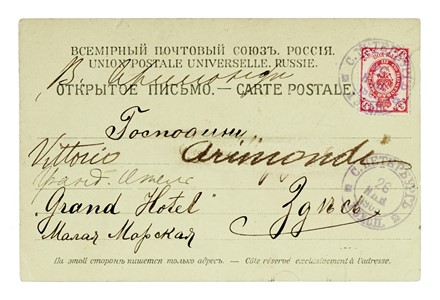 ВСЕМІРНЫЙ ПОЧТОВЫЙ СОЮЗЪ. РОССІЯ.
UNION POSTALE UNIVERSELLE. RUSSIE.
ОТКРЫТОЕ ПИСЬМО. — CARTE POSTALE.
С.ПЕТЕРБУРГЪ
Господину
Vittorio Arimondi
Grand
Grand Hotel Здѣсь
Малая Морская
С.ПЕТЕРБУРГЪ
26
На этой сторонѣ пишется только адресъ. — Côte réservé exclusivement à l'adresse.